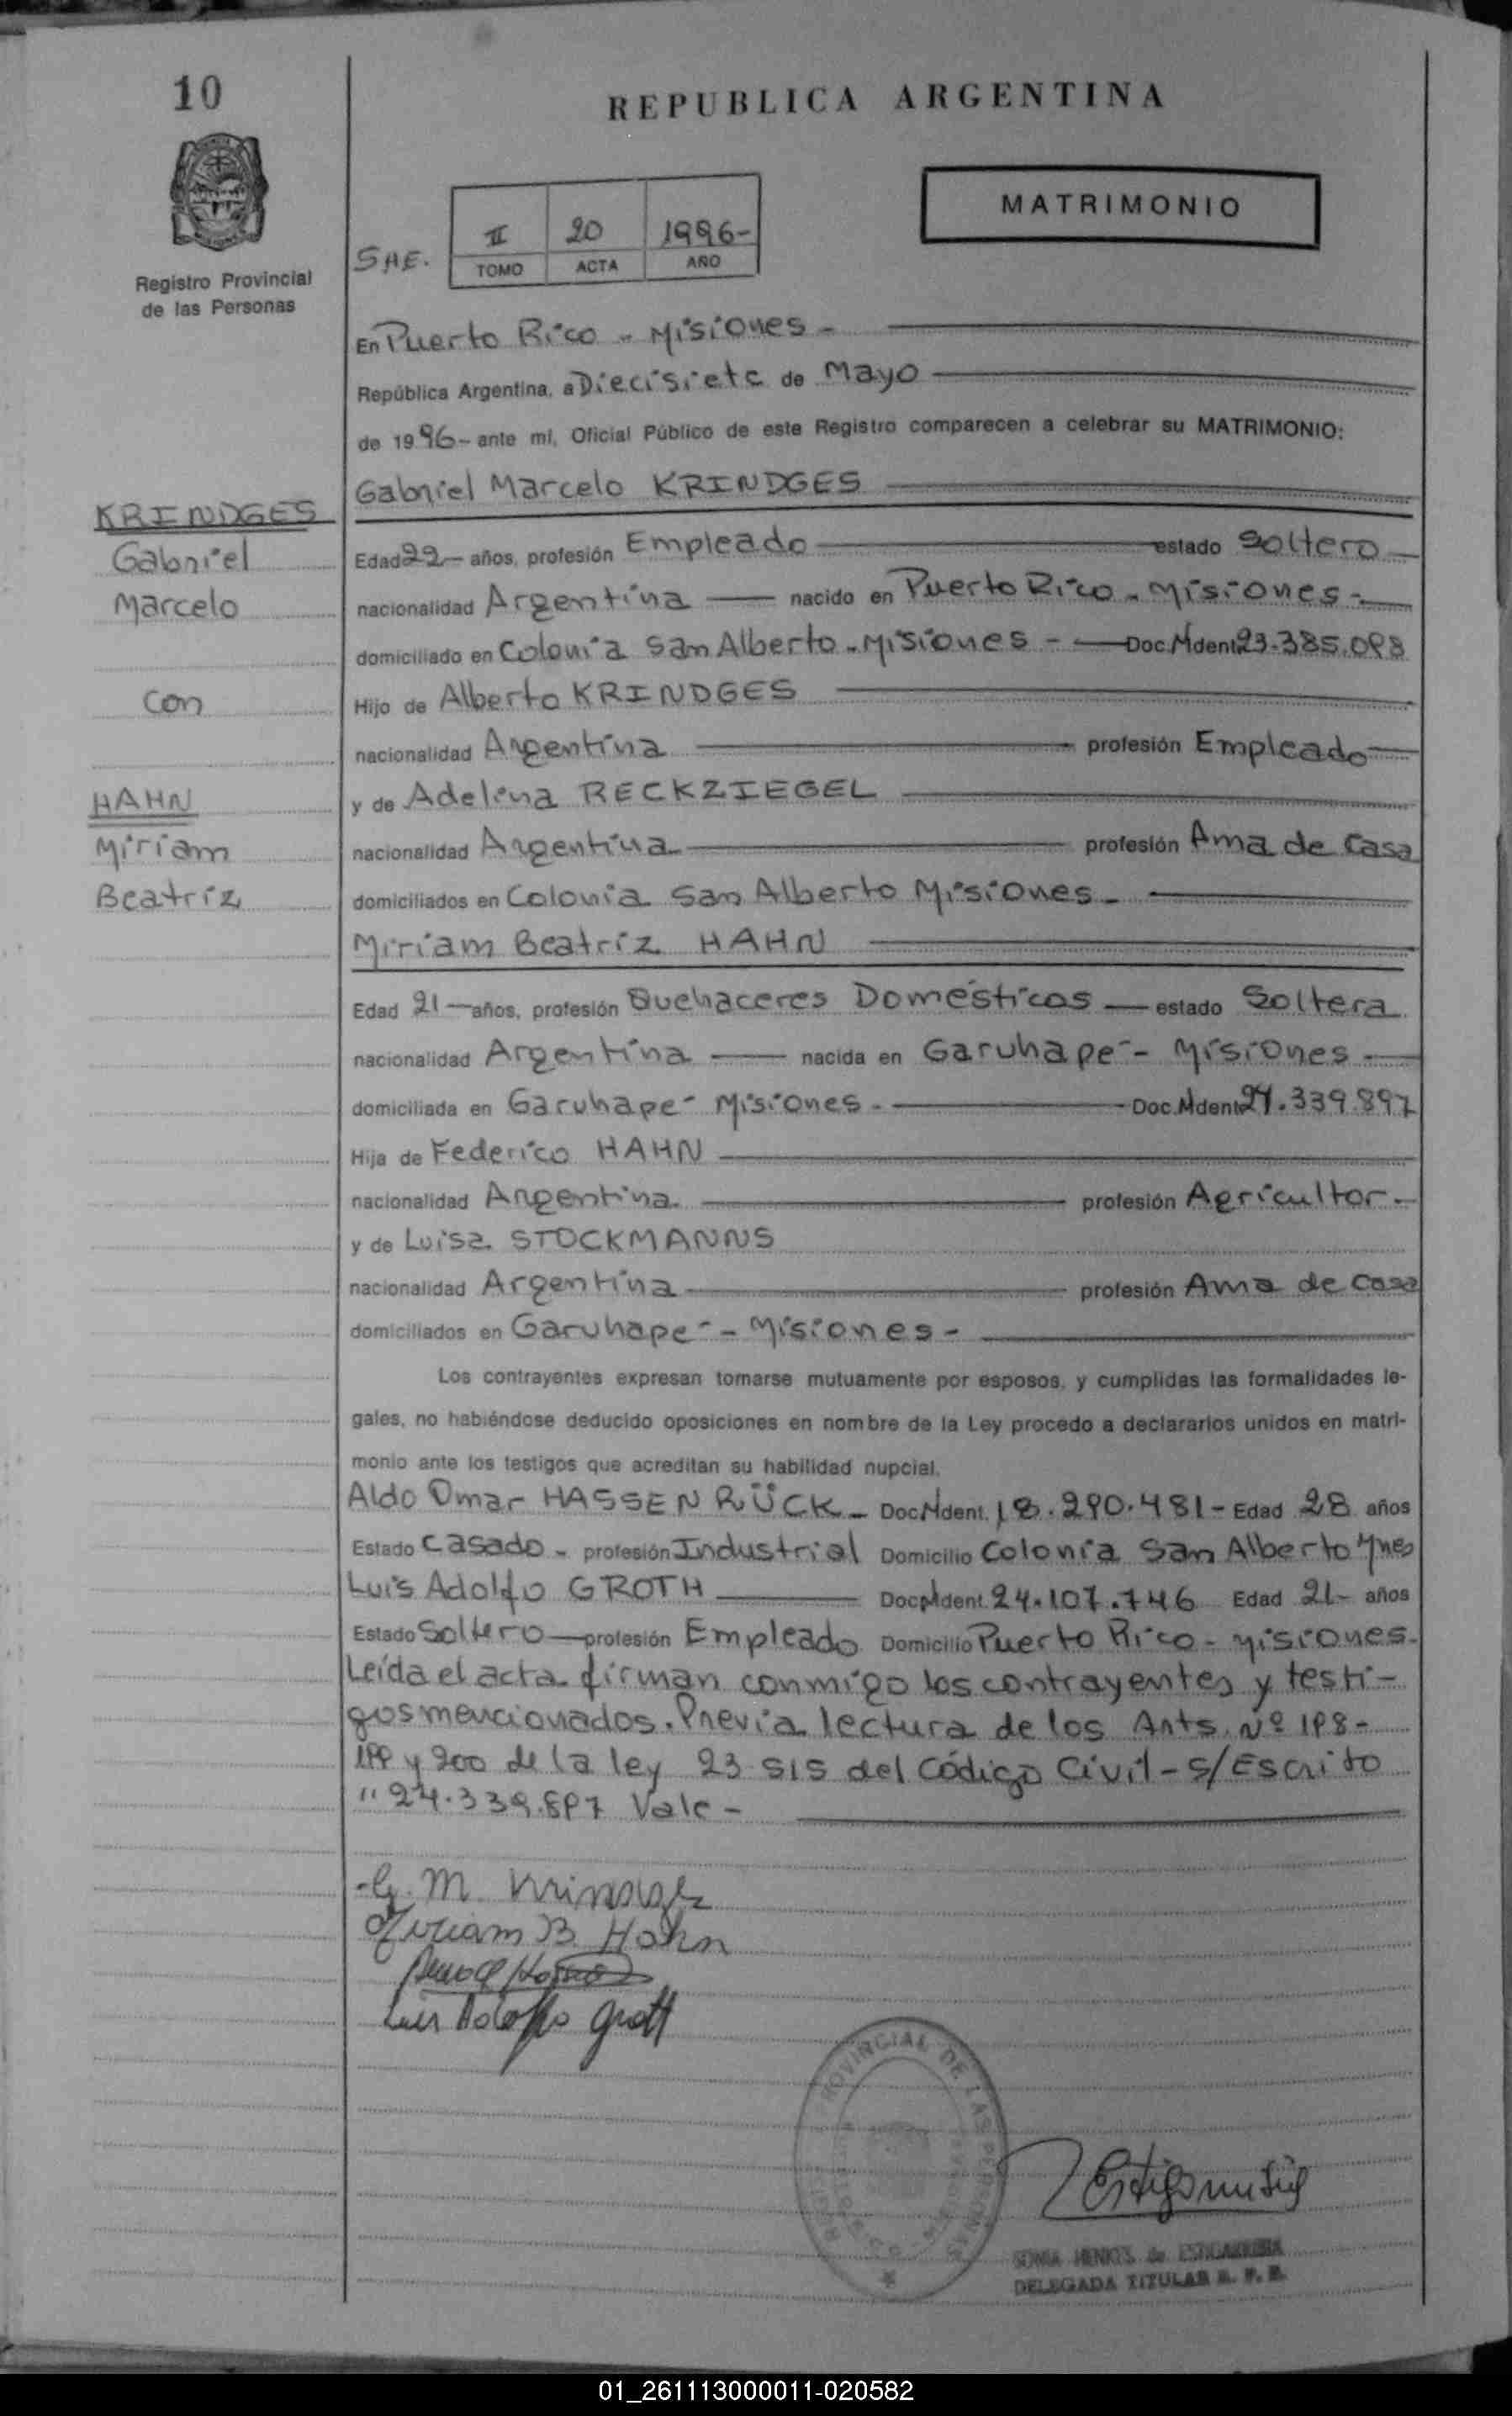 10
REPUBLICA ARGENTINA
MATRIMONIO
II 20 1996-
TOMO ACTA AÑO
Registro Provincial
de las Personas
En Puerto Rico - Misiones -
República Argentina, a Diecisiete de Mayo
de 1996- ante mí, Oficial Público de este Registro comparecen a celebrar su MATRIMONIO:
Gabriel Marcelo KRINDGES
KRINDGES
Gabriel
Marcelo
con
HAHN
Miriam
Beatriz
Edad 22- años, profesión Empleado estado Soltero
nacionalidad Argentina nacido en Puerto Rico - Misiones -
domiciliado en Colonia San Alberto - Misiones - Doc. N ident. 23.385.098
Hijo de Alberto KRINDGES
nacionalidad Argentina profesión Empleado
y de Adelina RECKZIEGEL
nacionalidad Argentina profesión Ama de Casa
domiciliados en Colonia San Alberto Misiones -
Miriam Beatriz HAHN
Edad 21 años, profesión Quehaceres Domésticos estado Soltera
nacionalidad Argentina nacida en Garuhapé - Misiones
domiciliada en Garuhapé Misiones - Doc. N ident. 24.339.897
Hija de Federico HAHN
nacionalidad Argentina profesión Agricultor -
y de Luisa STOCKMANNS
nacionalidad Argentina profesión Ama de Casa
domiciliados en Garuhapé - Misiones -
Los contrayentes expresan tomarse mutuamente por esposos, y cumplidas las formalidades le-
gales, no habiéndose deducido oposiciones en nombre de la Ley procedo a declararlos unidos en matri-
monio ante los testigos que acreditan su habilidad nupcial.
Aldo Omar HASSENRÜCK - Doc. N ident. 18.290.481 - Edad 28 años
Estado Casado - profesión Industrial Domicilio Colonia San Alberto Mnes
Luis Adolfo GROTH Doc. N ident. 24.107.746 Edad 21- años
Estado Soltero profesión Empleado Domicilio Puerto Rico - Misiones.
Leída el acta firman conmigo los contrayentes y testi-
gos mencionados. Previa lectura de los Arts. Nº 198-
199 y 200 de la ley 23.515 del Código Civil - S/Escrito
"24.339.897 Vale -
G. M. Krindges
Miriam B. Hahn
Luis Adolfo Groth
PROVINCIAL DE LAS PERSONAS
SONIA HENKES de
DELEGADA TITULAR R. P. P.
01_261113000011-020582